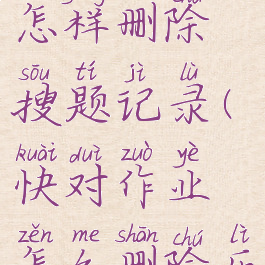 怎样删除
sōu tí jì lù
搜题记录(
kuài duì zuò yè
快对作业
zěn me shān chú lì
怎么删除历